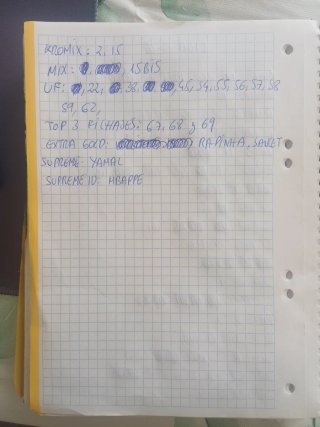 KROMIX: 2, 15
MIX: , 15BIS
UF: , 22, , 38, , 45, 54, 55, 56, 57, 58
59, 62,
TOP 3 FICHAJES: 67, 68 y 69
EXTRA GOLD: RAPINHA, SAULT
SUPREME: YAMAL
SUPREME ID: MBAPPE